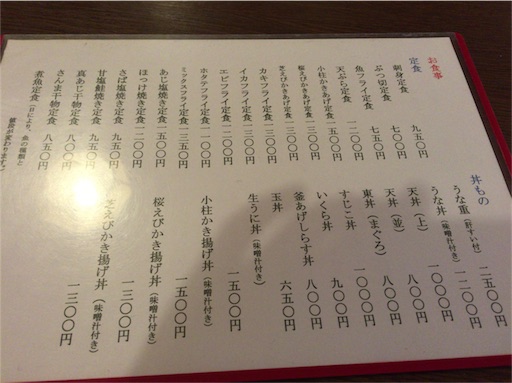 お食事
定食
刺身定食 九五〇円
ぶつ切定食 七〇〇円
魚フライ定食 七五〇円
天ぷら定食 一二〇〇円
小柱かきあげ定食 一五〇〇円
桜えびかきあげ定食 一三〇〇円
芝えびかきあげ定食 一三〇〇円
カキフライ定食 一二〇〇円
イカフライ定食 一三〇〇円
エビフライ定食 一二〇〇円
ホタテフライ定食 一一〇〇円
ミックスフライ定食 一三五〇円
あじ塩焼き定食 一一〇〇円
ほっけ焼き定食 一二〇〇円
さば塩焼き定食 九五〇円
甘塩鮭焼き定食 九五〇円
真あじ干物定食 九五〇円
さんま干物定食 八〇〇円
煮魚定食 八五〇円
(日により、魚の種類と
値段が変わります。)
丼もの
うな重(肝すい付) 二五〇〇円
うな丼(味噌汁付き) 一二〇〇円
天丼(上) 一〇〇〇円
天丼(並) 八〇〇円
東丼(まぐろ) 八〇〇円
すじこ丼 一〇〇〇円
いくら丼 九〇〇円
釜あげしらす丼 八〇〇円
玉丼 六五〇円
生うに丼(味噌汁付き)
小柱かき揚げ丼(味噌汁付き) 一五〇〇円
桜えびかき揚げ丼(味噌汁付き) 一五〇〇円
芝えびかき揚げ丼(味噌汁付き) 一三〇〇円
一三〇〇円